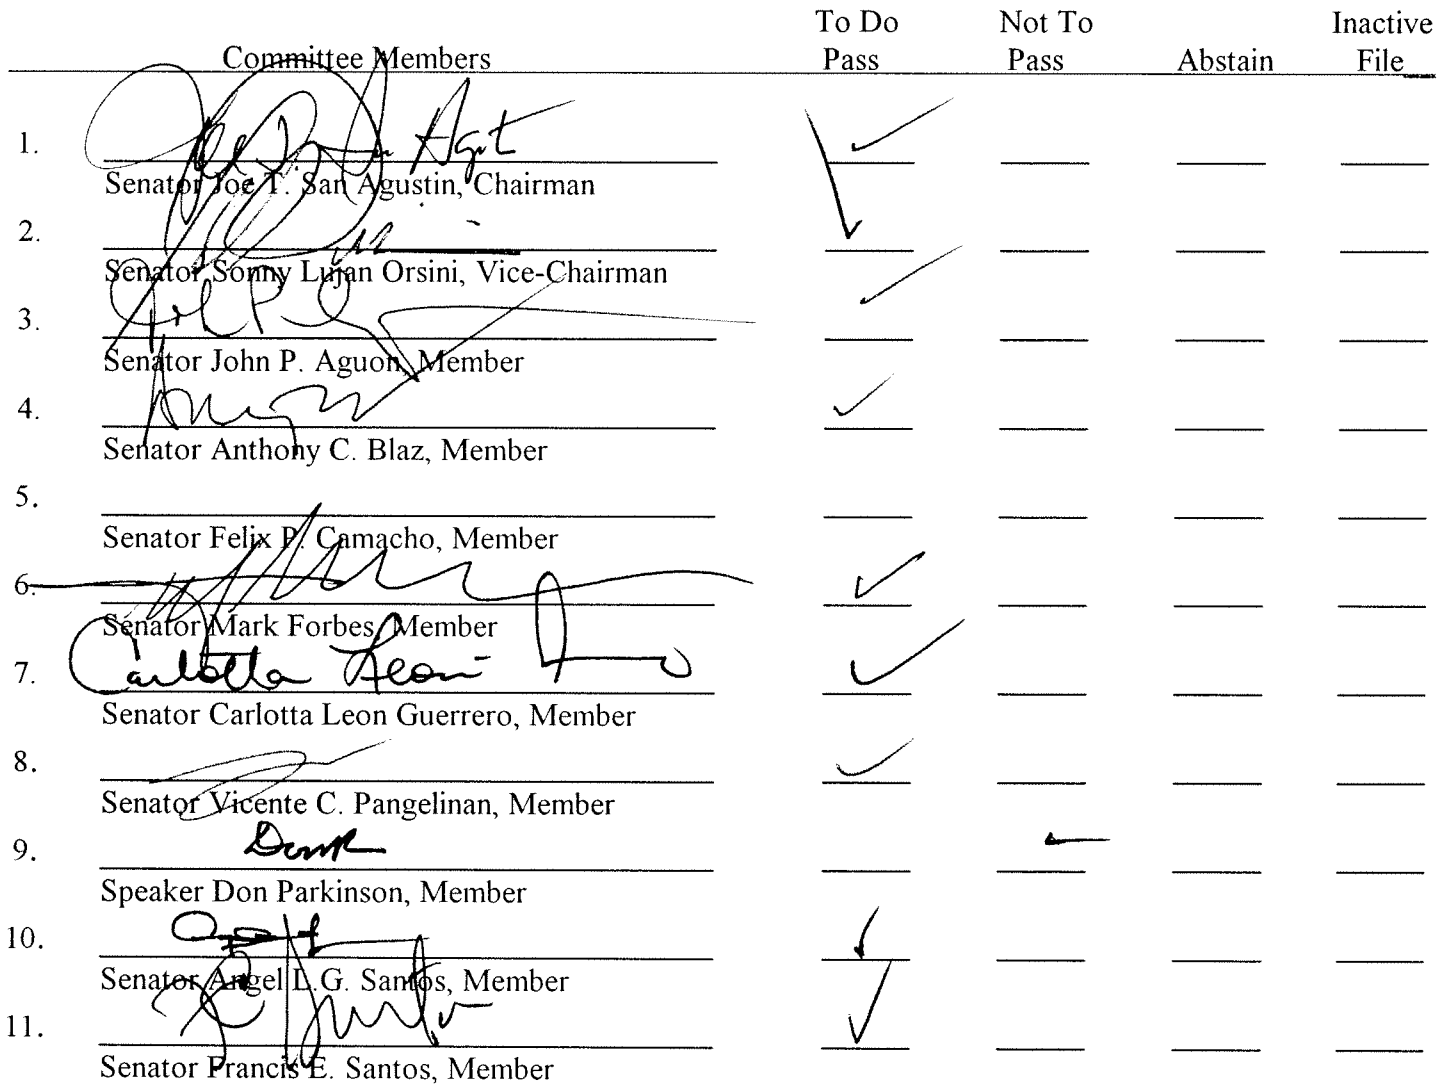 To Do Not To Inactive
Committee Members Pass Pass Abstain File
1.
Senator Joe T. San Agustin, Chairman
2.
Senator Sonny Lujan Orsini, Vice-Chairman
3.
Senator John P. Aguon, Member
4.
Senator Anthony C. Blaz, Member
5.
Senator Felix P. Camacho, Member
6.
Senator Mark Forbes, Member
7. Carlotta Leon
Senator Carlotta Leon Guerrero, Member
8.
Senator Vicente C. Pangelinan, Member
9.
Speaker Don Parkinson, Member
10.
Senator Angel L.G. Santos, Member
11.
Senator Francis E. Santos, Member